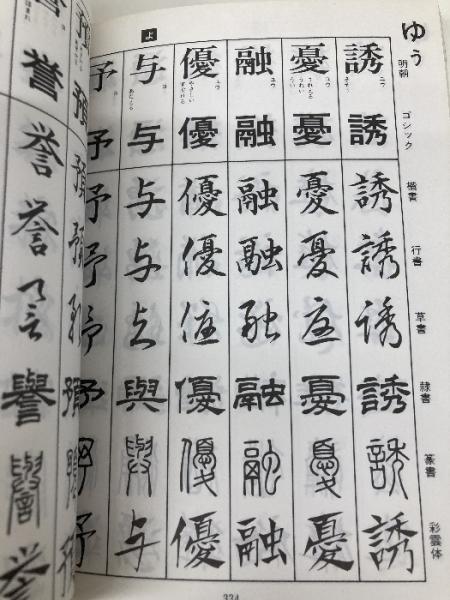 ゆう
明朝
ゴシック
楷書
行書
草書
隷書
篆書
彩雲体
誘誘誘誘誘誘誘誘
ユウ
さそう
憂憂憂憂憂憂憂憂
ユウ
うれえる
うれい
融融融融融融融融
ユウ
優優優優優優優優
ユウ
やさしい
すぐれる
よ
与与与与与與與与
あたえる
予予予予予予予予
預預預預預預預預
誉誉誉誉誉譽譽誉
334